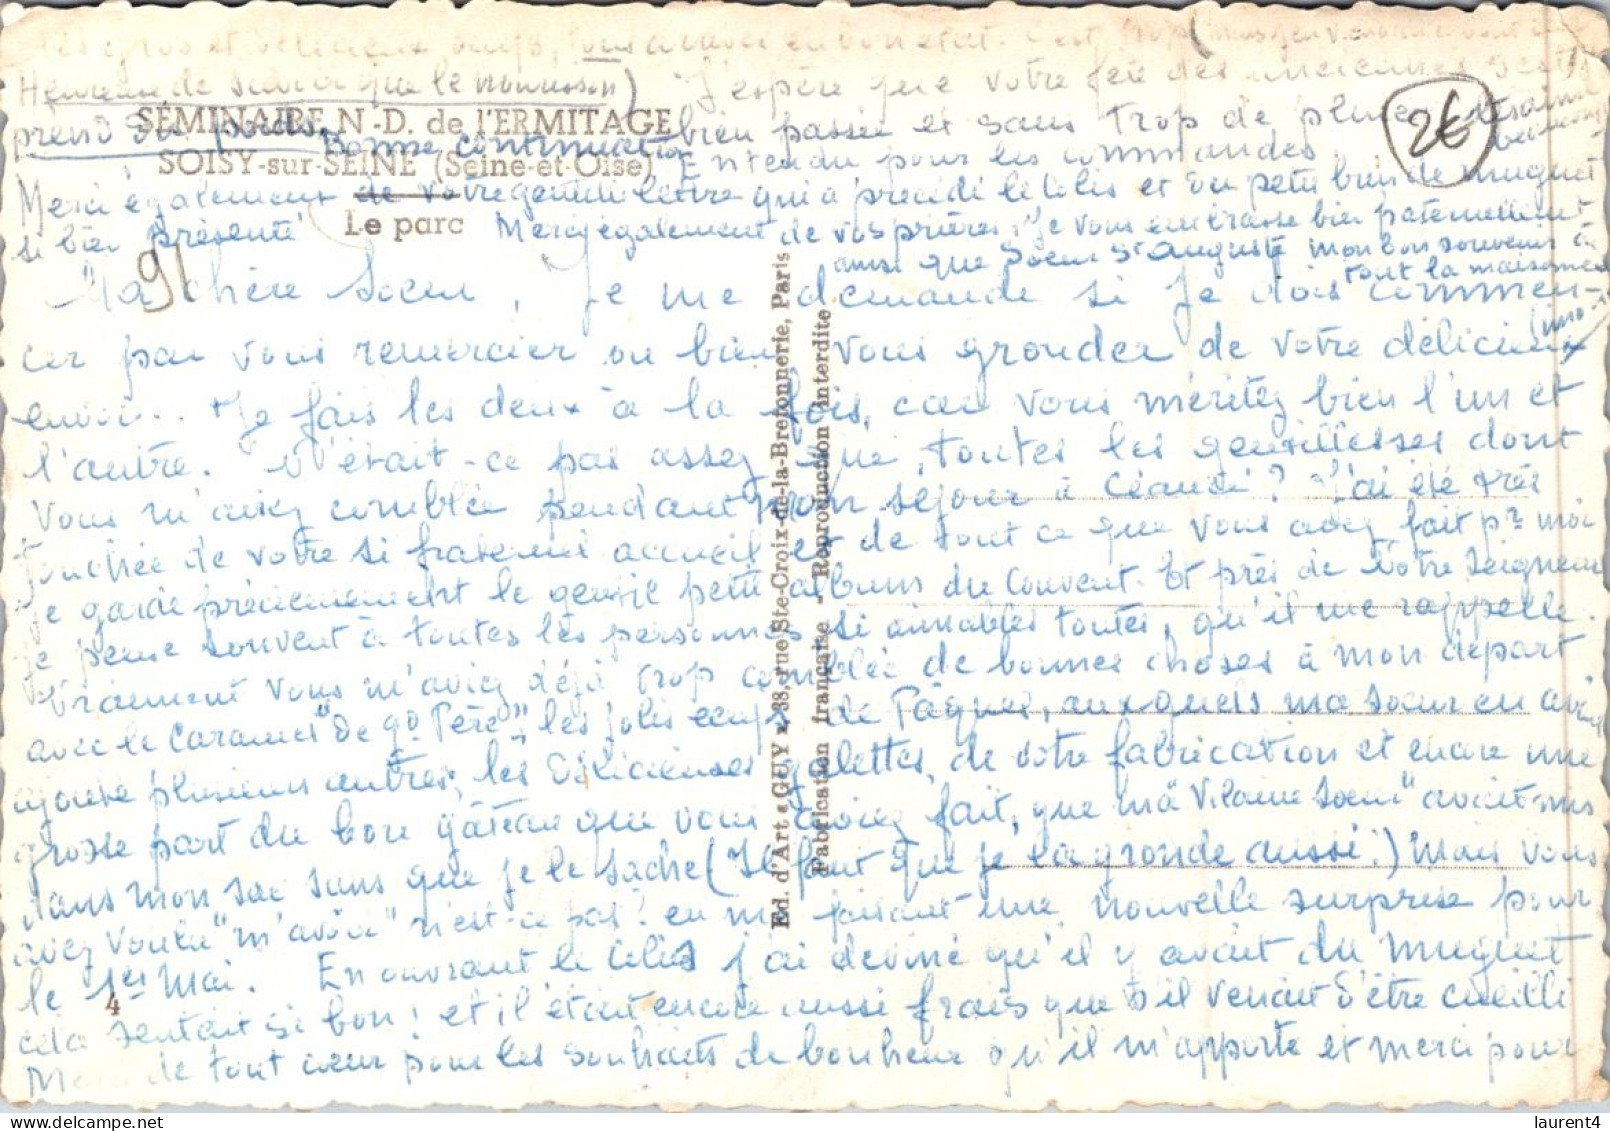 SÉMINAIRE N.-D. de l'ERMITAGE
SOISY-sur-SEINE (Seine-et-Oise)
Le parc
2€
91
4
Ed. d'Art « GUY », 38, rue Ste-Croix-de-la-Bretonnerie, Paris
Fabrication française - Reproduction interdite
Ma chère Soeur, Je me demande si Je dois commen-
cer par vous remercier ou bien vous gronder de votre délicieux
envoi.. Je fais les deux à la fois, car vous méritez bien l'un et
l'autre. N'était-ce pas assez que toutes les gentillesses dont
vous m'aviez comblée pendant mon séjour à ? J'ai été très
touchée de votre si fraternel accueil et de tout ce que vous avez fait pr moi
je garde précieusement le gentil petit album du Couvent. Et près de Notre Seigneur
je pense souvent à toutes les personnes si aimables toutes, qu'il me rappelle.
Vraiment vous m'aviez déjà trop comblée de bonnes choses à mon départ
avec le Caramel "de gd Père", les jolis oeufs de Pâques, auxquels ma Soeur en avait
ajouté plusieurs autres, les délicieuses galettes, de votre fabrication et encore une
grosse part du bon gâteau que vous aviez fait, que ma "Vilaine Soeur" avait mis
dans mon sac sans que je le sache (Il faut que je la gronde aussi.) Mais vous
avez voulu "m'avoir" n'est-ce pas? en me faisant une nouvelle surprise pour
le 1er Mai. En ouvrant le Colis j'ai deviné qu'il y avait du muguet
cela sentait si bon! et il était encore aussi frais que s'il venait d'être cueilli
Merci de tout coeur pour les souhaits de bonheur qu'il m'apporte et merci pour
les gros et délicieux oeufs, tous arrivés en bon état. C'est trop
Heureuse de savoir que le nourrisson) J'espère que votre fête des anciennes s'est
prend du poids. Bonne continuation bien passée et sans trop de pluie
Entendu pour les commandes.
Merci également de votre gentille lettre qui a précédé le Colis et du petit brin de muguet
si bien présenté Merci également de vos prières. Je vous embrasse bien fraternellement
ainsi que Soeur St Auguste mon bon souvenir à
tout la maisonnée